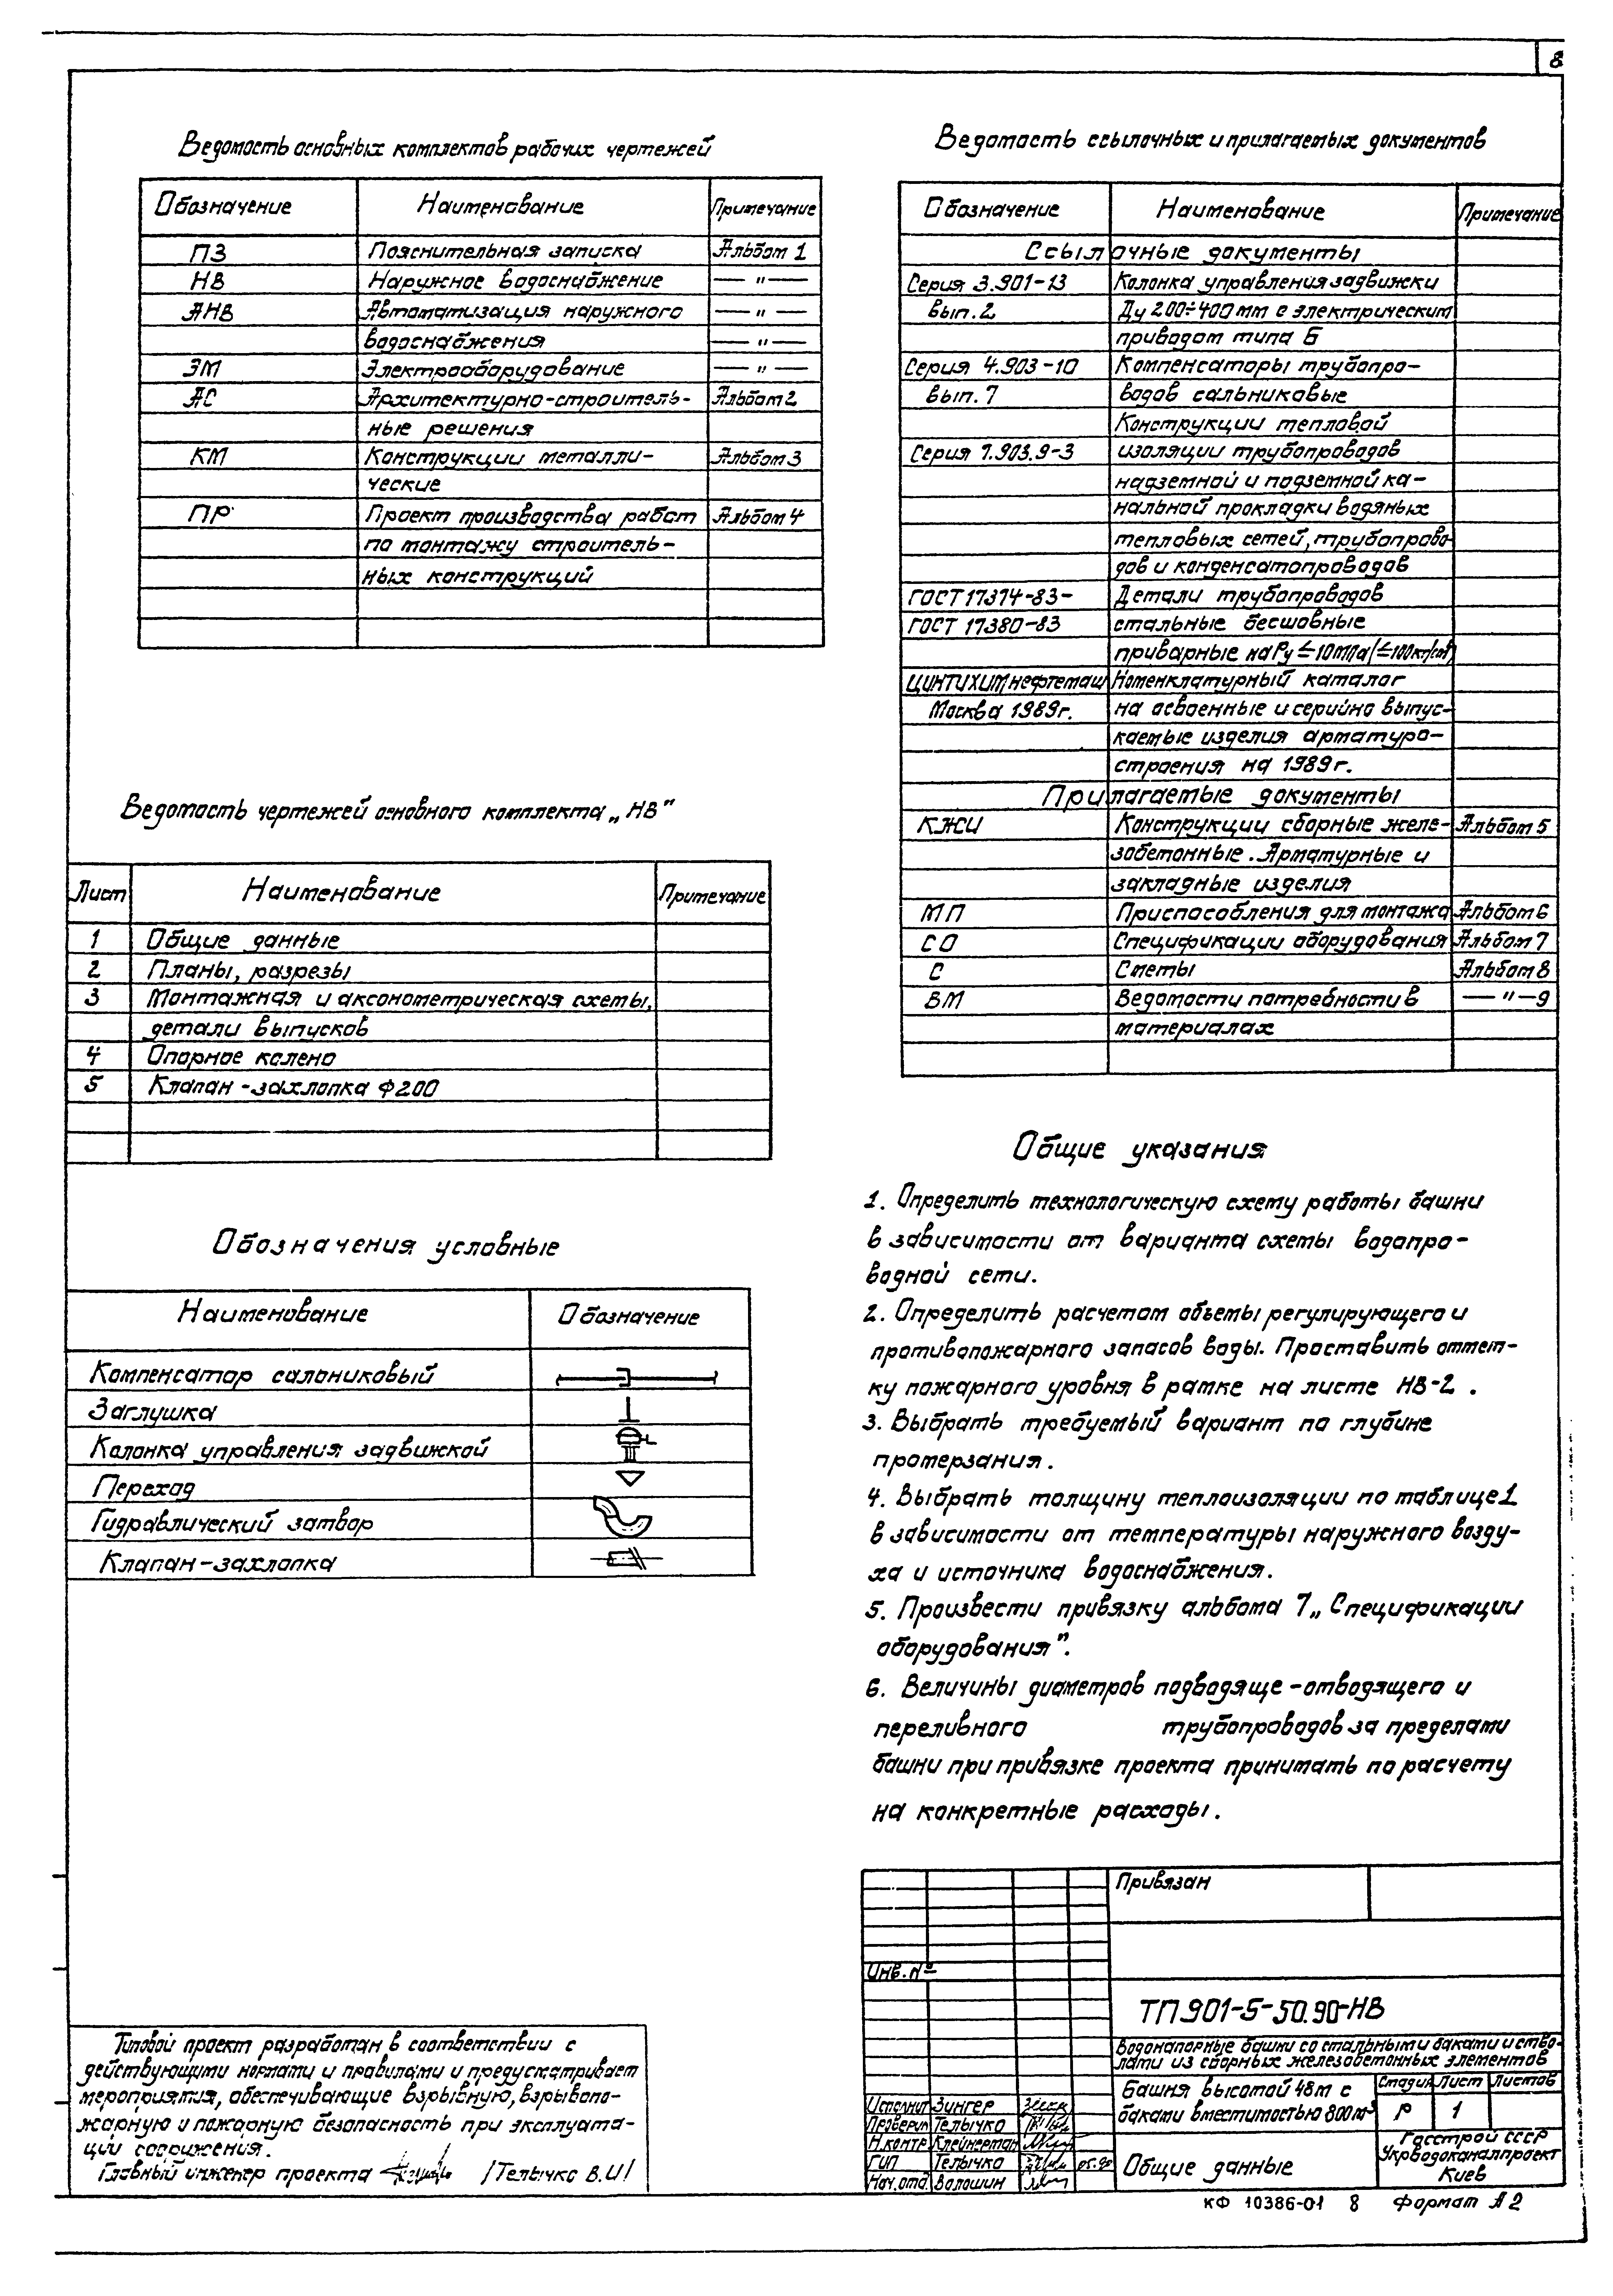 8
Ведомость основных комплектов рабочих чертежей
Обозначение Наименование Примечание
ПЗ Пояснительная записка Альбом 1
НВ Наружное водоснабжение — " —
АНВ Автоматизация наружного — " —
водоснабжения — " —
ЭМ Электрооборудование — " —
АС Архитектурно-строитель- Альбом 2
ные решения
КМ Конструкции металли- Альбом 3
ческие
ПР Проект производства работ Альбом 4
по монтажу строитель-
ных конструкций
Ведомость чертежей основного комплекта „НВ"
Лист Наименование Примечание
1 Общие данные
2 Планы, разрезы
3 Монтажная и аксонометрическая схемы,
детали выпусков
4 Опорное колено
5 Клапан-захлопка Ф200
Обозначения условные
Наименование Обозначение
Компенсатор салониковый
Заглушка
Колонка управления задвижкой
Переход
Гидравлический затвор
Клапан-захлопка
Типовой проект разработан в соответствии с
действующими нормами и правилами и предусматривает
мероприятия, обеспечивающие взрывную, взрывопо-
жарную и пожарную безопасность при эксплуата-
ции сооружения.
Главный инженер проекта /Телычко В.И/
Ведомость ссылочных и прилагаемых документов
Обозначение Наименование Примечание
Ссылочные документы
Серия 3.901-13 Колонка управления задвижки
вып.2 Ду 200÷400 мм с электрическим
приводом типа Б
Серия 4.903-10 Компенсаторы трубопро-
вып.7 водов сальниковые
Конструкции тепловой
Серия 7.903.9-3 изоляции трубопроводов
надземной и подземной ка-
нальной прокладки водяных
тепловых сетей, трубопрово-
дов и конденсатопроводов
ГОСТ 17374-83- Детали трубопроводов
ГОСТ 17380-83 стальные бесшовные
приварные на Ру ≤ 10МПа (≤100кг/см²)
ЦИНТИХИМнефтемаш Номенклатурный каталог
Москва 1989г. на освоенные и серийно выпус-
каемые изделия арматуро-
строения на 1989г.
Прилагаемые документы
КЖИ Конструкции сборные желе- Альбом 5
зобетонные. Арматурные и
закладные изделия
МП Приспособления для монтажа Альбом 6
СО Спецификации оборудования Альбом 7
С Сметы Альбом 8
ВМ Ведомости потребности в — " — 9
материалах
Общие указания
1. Определить технологическую схему работы башни
в зависимости от варианта схемы водопро-
водной сети.
2. Определить расчетом объемы регулирующего и
противопожарного запасов воды. Проставить отмет-
ку пожарного уровня в рамке на листе НВ-2.
3. Выбрать требуемый вариант по глубине
промерзания.
4. Выбрать толщину теплоизоляции по таблице 1
в зависимости от температуры наружного возду-
ха и источника водоснабжения.
5. Произвести привязку альбома 7 „Спецификации
оборудования".
6. Величины диаметров подводяще-отводящего и
переливного трубопроводов за пределами
башни при привязке проекта принимать по расчету
на конкретные расходы.
Привязан
Инв. №
ТП 901-5-50.90-НВ
Водонапорные башни со стальными баками и ство-
лами из сборных железобетонных элементов
Башня высотой 48м с
баками вместимостью 800м³
Стадия Лист Листов
Р 1
Исполнит Зингер
Проверил Телычко
Н.контр Клейнерман
ГИП Телычко 05.90
Нач.отд. Волошин
Общие данные
Госстрой СССР
Укрводоканалпроект
Киев
КФ 10386-01 8 Формат А2